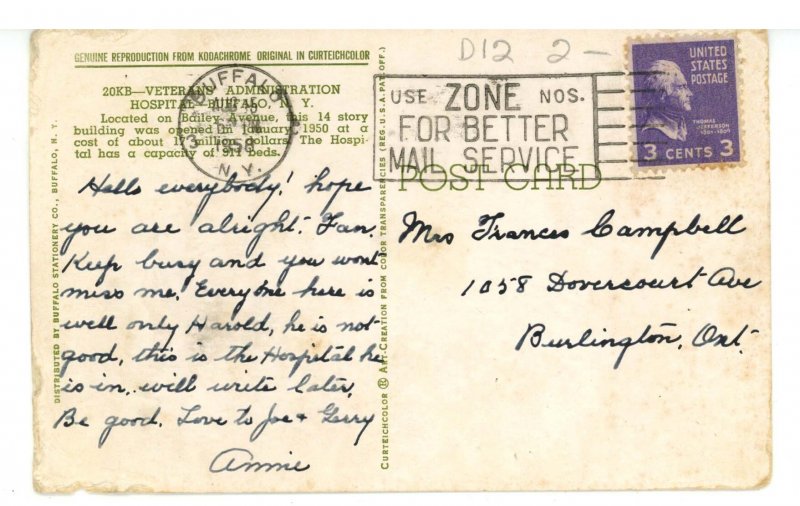 GENUINE REPRODUCTION FROM KODACHROME ORIGINAL IN CURTEICHCOLOR
20KB—VETERANS' ADMINISTRATION
HOSPITAL, BUFFALO, N. Y.
Located on Bailey Avenue, this 14 story
building was opened in January, 1950 at a
cost of about million dollars. The Hospi-
tal has a capacity of 911 beds.
Hello everybody! hope
you are alright. Fan.
Keep busy and you wont
miss me. Everyone here is
well only Harold, he is not
good, this is the Hospital he
is in. will write later.
Be good. Love to Joe + Gerry
Annie
DISTRIBUTED BY BUFFALO STATIONERY CO., BUFFALO, N. Y.
CURTEICHCOLOR ® ART-CREATION FROM COLOR TRANSPARENCIES (REG. U.S.A. PAT. OFF.)
BUFFALO
1958
N. Y.
D12 2-
USE ZONE NOS.
FOR BETTER
MAIL SERVICE
UNITED
STATES
POSTAGE
THOMAS
JEFFERSON
1801-1809
3 CENTS 3
POST CARD
Mrs Frances Campbell
1058 Dovercourt Ave
Burlington, Ont.